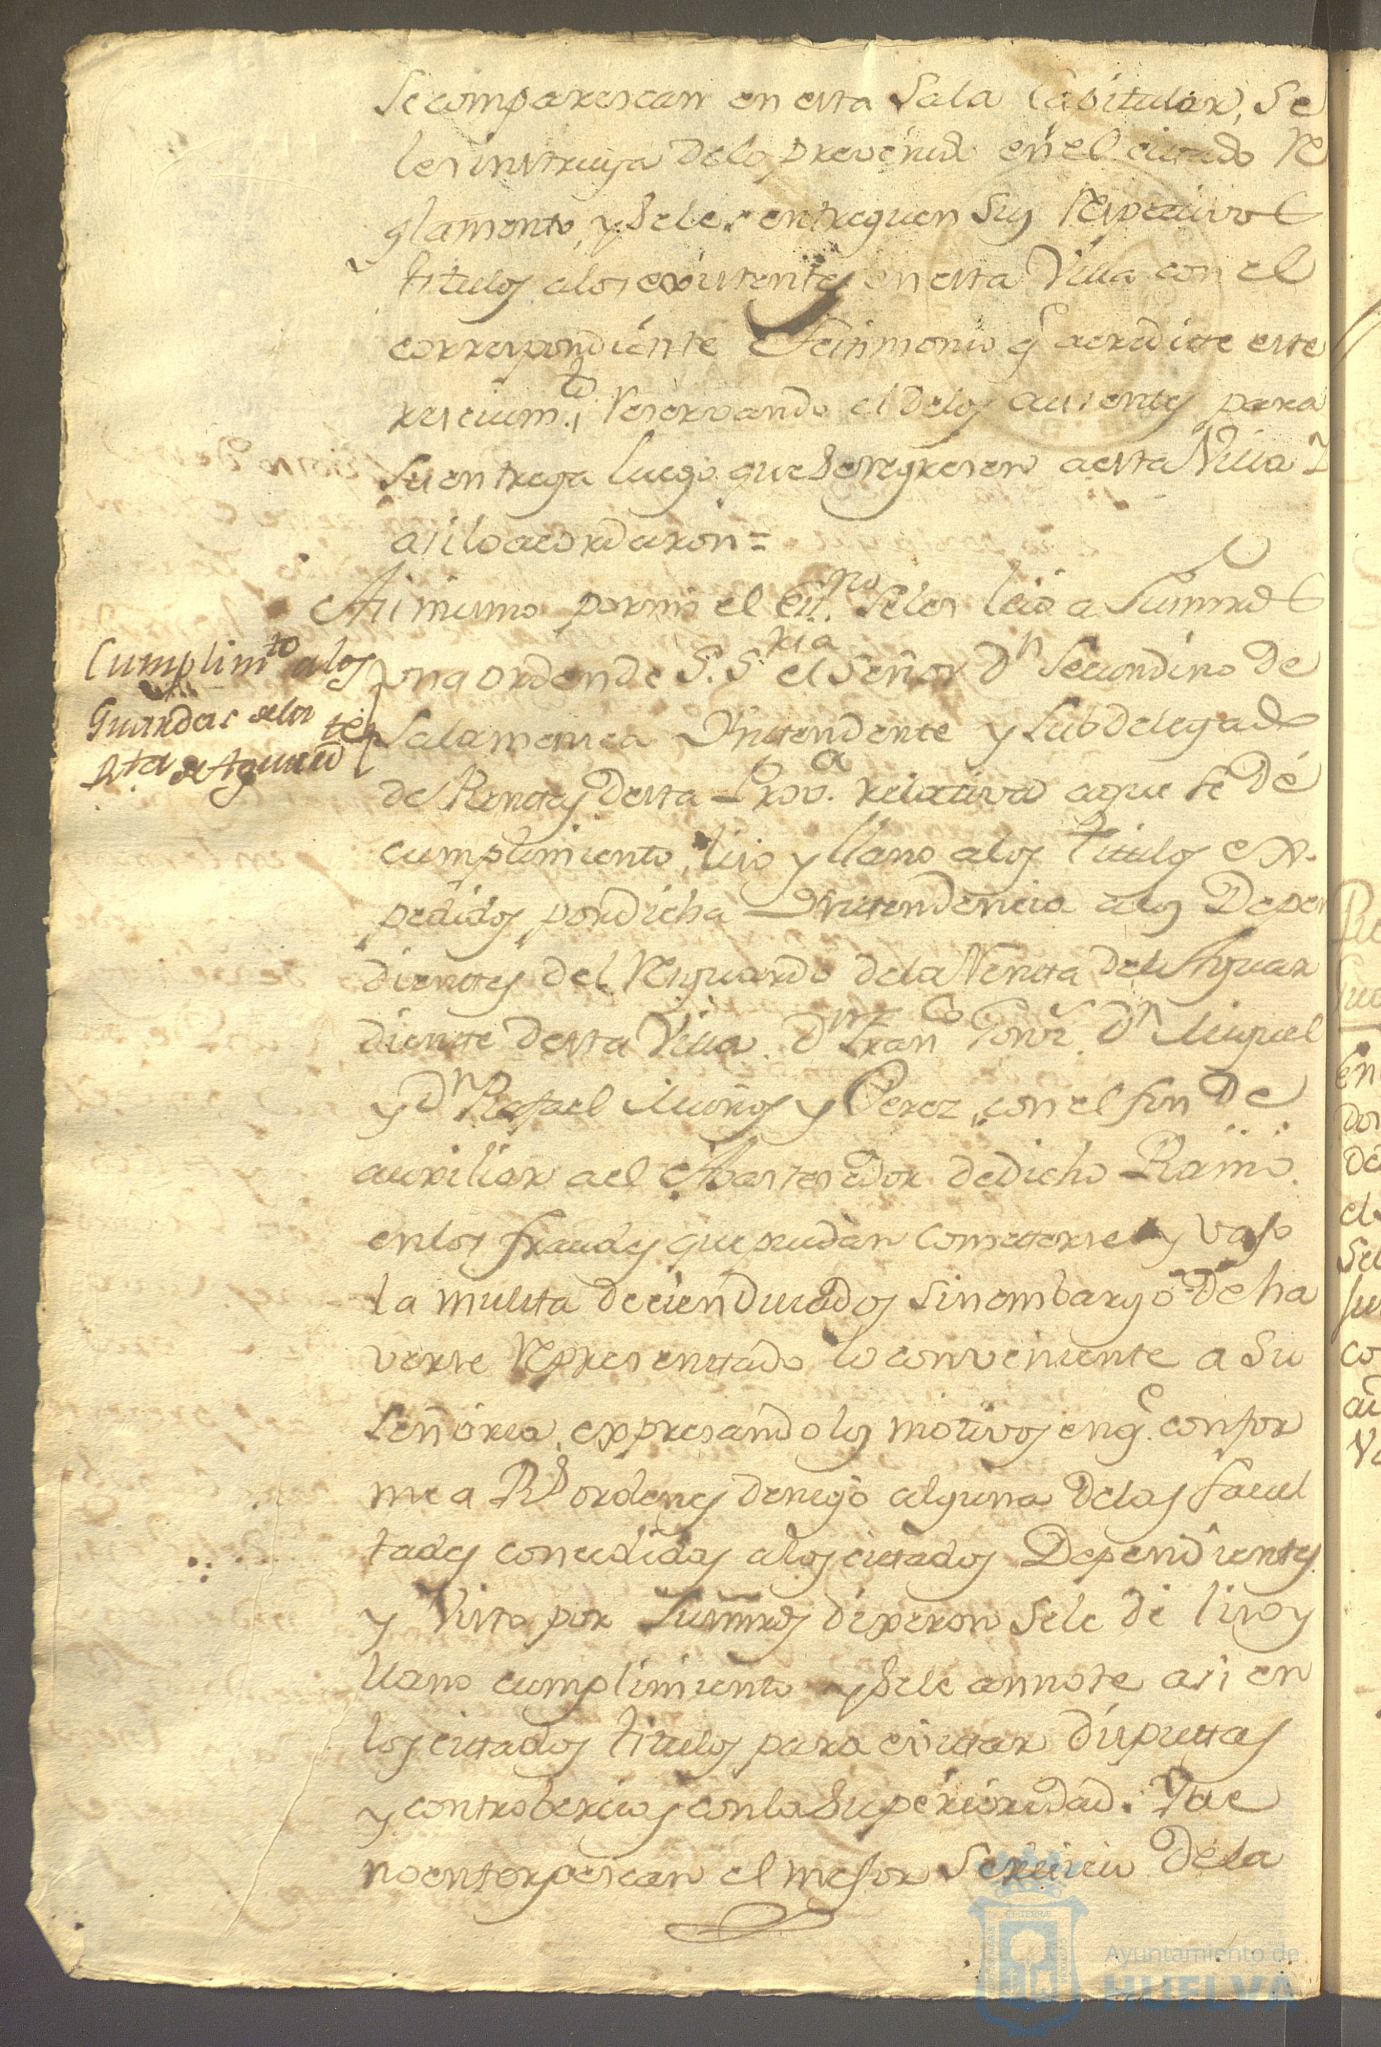 Se comparescan en esta Sala Capitular, Se
les instruya delo prevenido en el citado Re
glamento, y Seles entreguen Sus respectivos
titulos alos existentes en esta Villa con el
correspondiente testimonio q.e acredite este
resevim.to, reservando el delos ausentes para
Su entrega luego que Seregresen aesta Villa
asilo acordaron =
Asi mismo por mi el Es.no Seles leio a Sus mrds
una orden de S.Sria el Señor Dn Secundino de
Salamanca Yntendente y Subdelegado
de Rentas desta Prov.a relativa aque se dé
cumplimiento, liso y llano alos Titulos ex-
pedidos por dicha Yntendencia alos Depen
dientes del Resguardo dela Renta del Aguar
diente desta Villa. Dn Franco Gonz. Dn Miguel
y Dn Rafael Muños y Perez, con el fin de
auxiliar ael Abastesedor de dicho Ramo
enlos fraudes que puedan Cometerse y vajo
la multa de cien ducados Sinembargo de ha
verse representado lo conveniente a Su
Señoria, expresando los motivos en q.e confor
me a Rs ordenes denegó alguna delas facul
tades consedidas alos citados Dependientes
y Visto por Sus mrds dixeron Sele de liso y
llano cumplimiento y Sele annote asi en
los citados titulos para evitar disputtas
y controbercias con la Superioridad. Y ae
no entorpescan el mejor Servicio dela
Cumplimto alos
Guardas dela
Rta de Aguardte
Ayuntamiento de
HUELVA